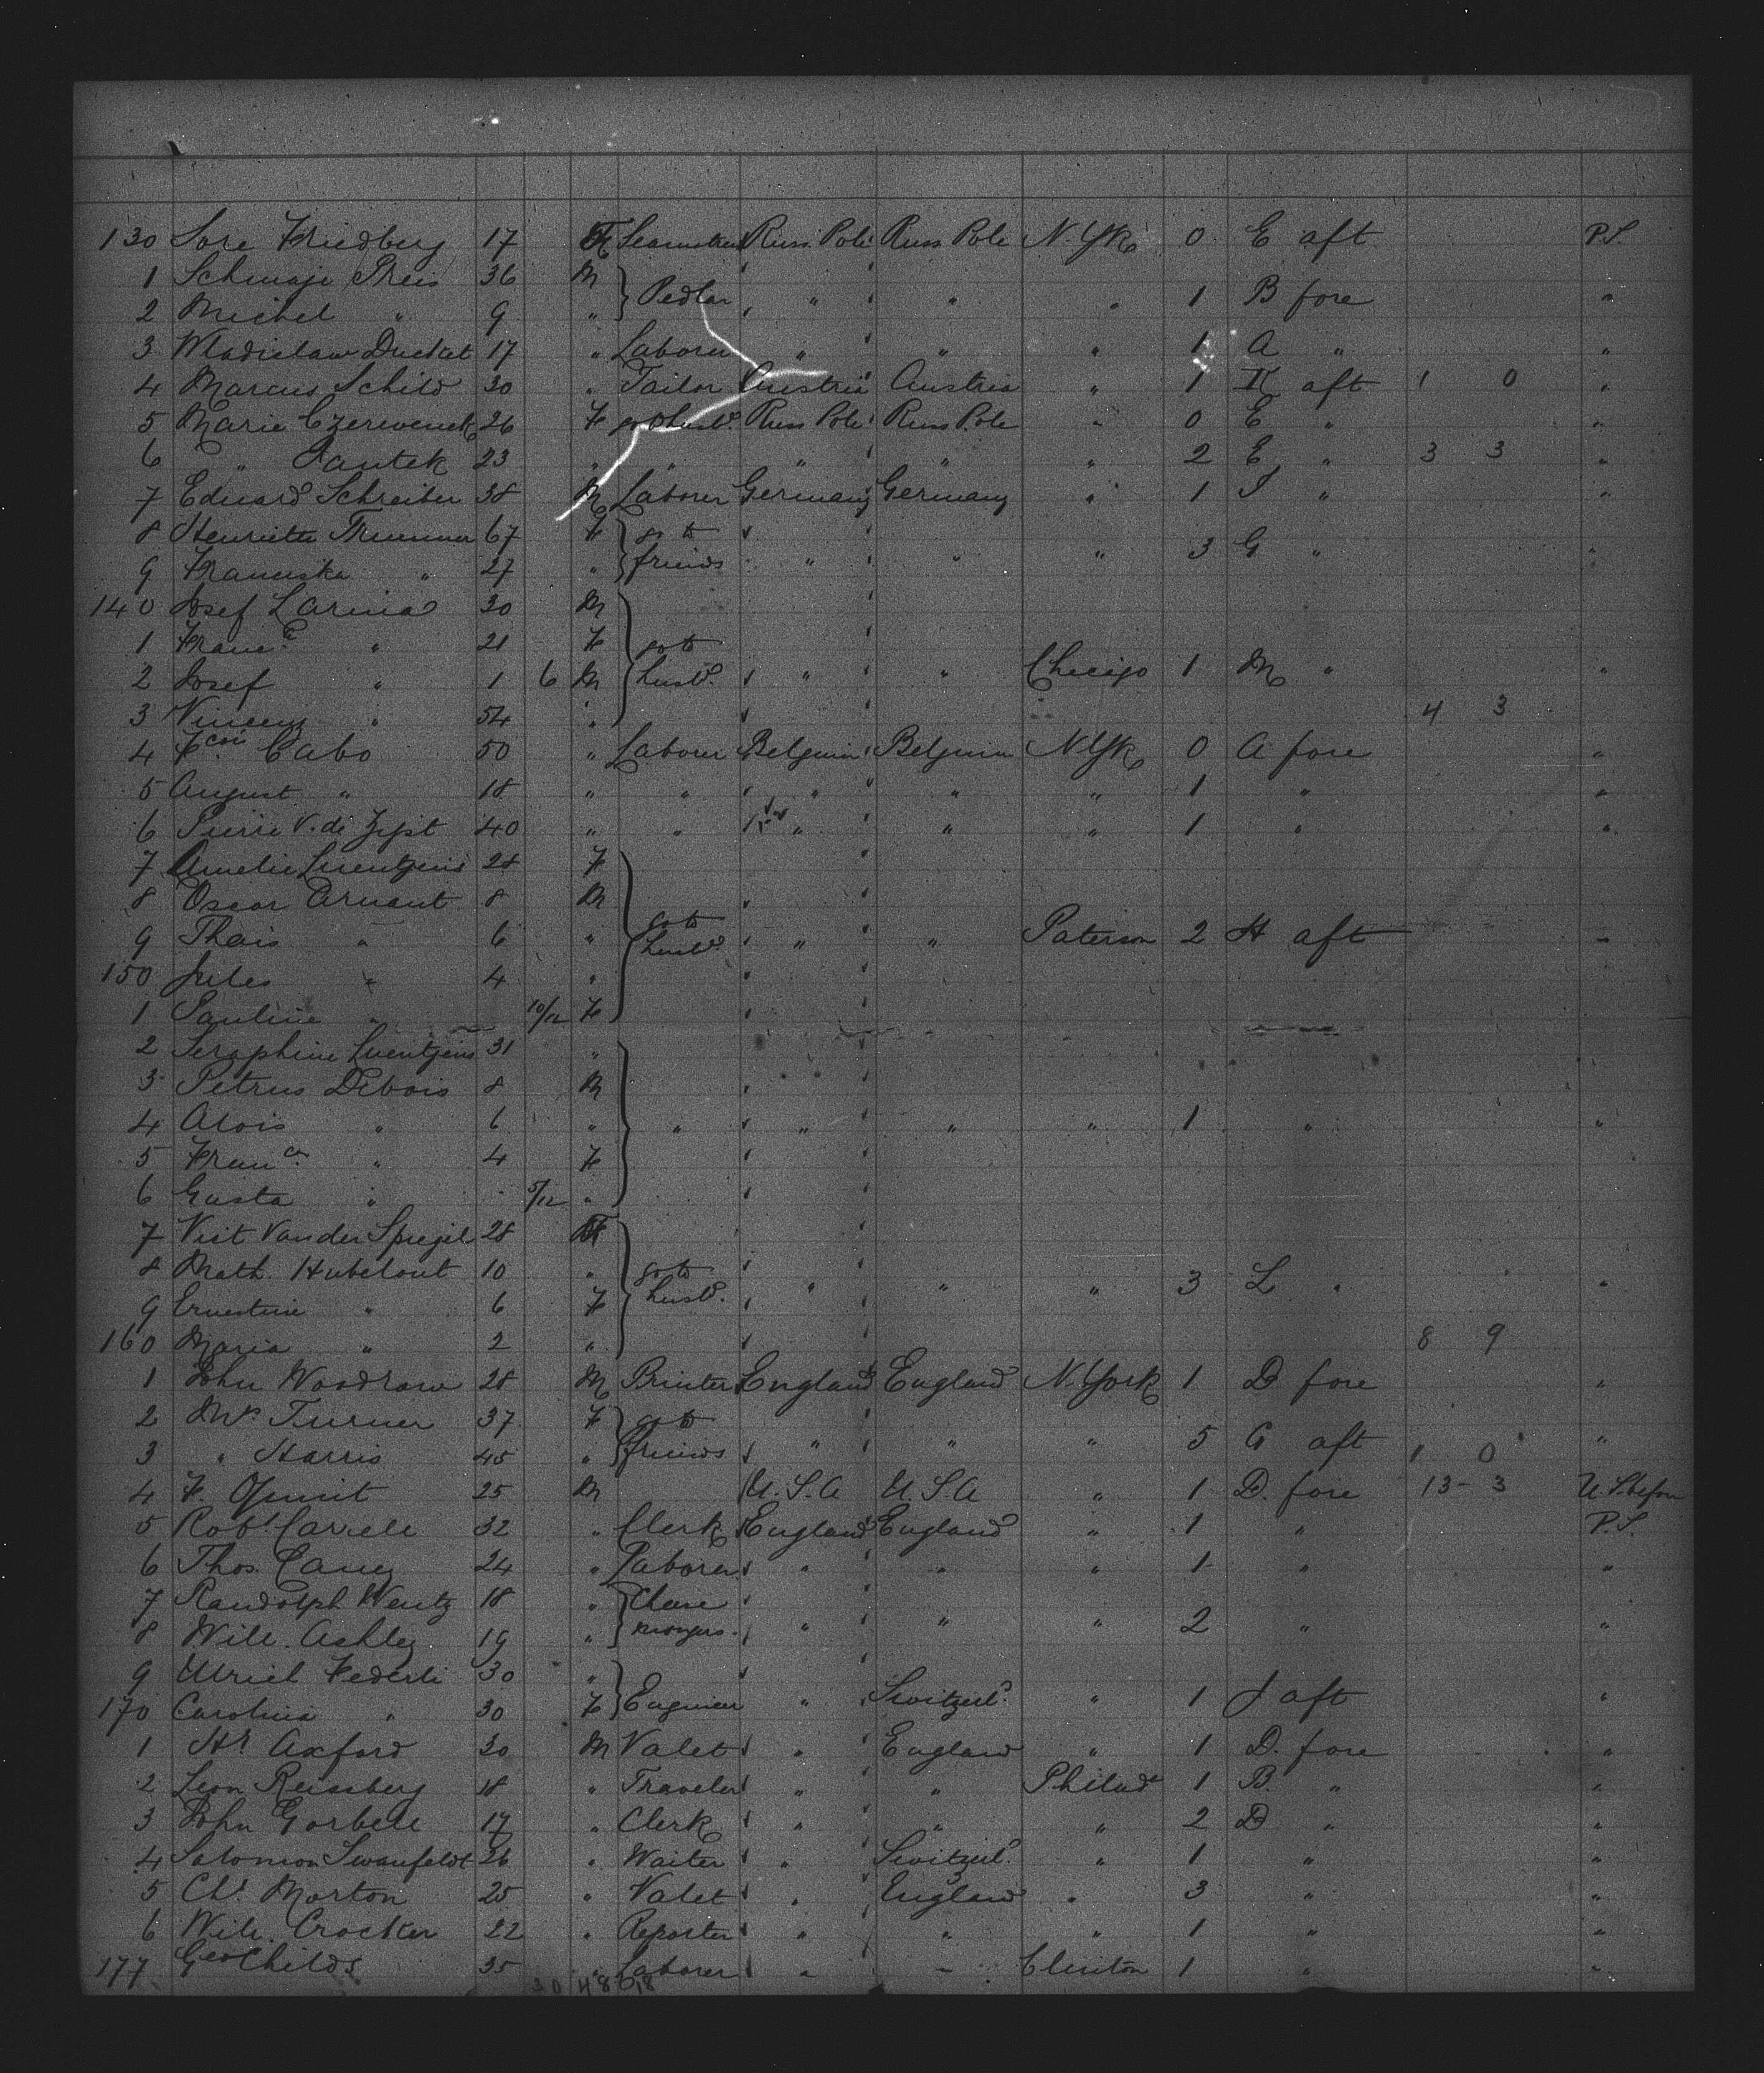 130 Sore Friedberg 17 F Seamstress Russ. Pole Russ Pole N. Yk 0 E aft P.S.
1 Schmaje Preis 36 M
Pedlar " " " 1 B fore "
2 Michel " 9 "
3 Wladislaw Duckat 17 " Laborer " " " 1 A " "
4 Marcus Schild 30 " Tailor Austria Austria " 1 K aft 1 0 "
5 Marie Czerwenck 26 F go to husbd. Russ Pole Russ Pole " 0 E " "
6 " Pantek 23 " " " " " 2 E " 3 3 "
7 Eduard Schreiber 38 M Laborer Germany Germany " 1 J " "
8 Henriette Thummer 67 F go to
9 Franciska " 27 " friends " " " 3 G " "
140 Josef Larina 30 M
1 Franca " 21 F go to
2 Josef " 1 6 M husbd. " " Chicago 1 M " "
3 Vincenz " 54 " 4 3
4 Fcois Cabo 50 " Laborer Belgium Belgium N Yk 0 A fore "
5 August " 18 " " " " " 1 " "
6 Pierre V. de Zypt 40 " " " " " 1 " "
7 Amelie Luentjens 28 F
8 Oscar Arnant 8 M
go to
9 Thais " 6 " husbd. " " Paterson 2 H aft "
150 Jules " 4 "
1 Pauline " 10/12 F
2 Seraphine Luentjens 31 "
3 Petrus Debois 8 M
4 Alois " 6 " " " " " 1 " "
5 Franca " 4 F
6 Gusta " 5/12 "
7 Vict Van der Spiegel 28 F
8 Math. Hubelout 10 " go to
" " " 3 L " "
9 Ernestine " 6 F husbd.
160 Maria " 2 " 8 9
1 John Woodrow 28 M Printer England England N. York 1 D fore "
2 Mrs Turner 37 F go to
" " " 5 G aft "
3 " Harris 45 " friends 1 0
4 F. 25 M U.S.A U.S.A " 1 D. fore 13 - 3
5 Robt 32 " Clerk England England " 1 " P.S.
6 Thos. Caney 24 " Laborer " " " 1 " "
7 Randolph Wentz 18 "
" " " 2 " "
8 Will. Ashley 19 "
9 Ulrich Federli 30 "
170 Carolina " 30 F Engineer " Switzerld. " 1 J aft "
1 Hy Axford 30 M Valet " England " 1 D. fore "
2 Leon Reissberg 18 " Traveler " " Philada 1 B " "
3 John Gorbell 17 " Clerk " " " 2 D " "
4 Salomon Swanfeldt 26 " Waiter " Switzerld. " 1 " "
5 Chs. Morton 25 " Valet " England " 3 " "
6 Will. Crocker 22 " Reporter " " " 1 " "
177 Geo Childs 35 " Laborer " " Clinton 1 " "